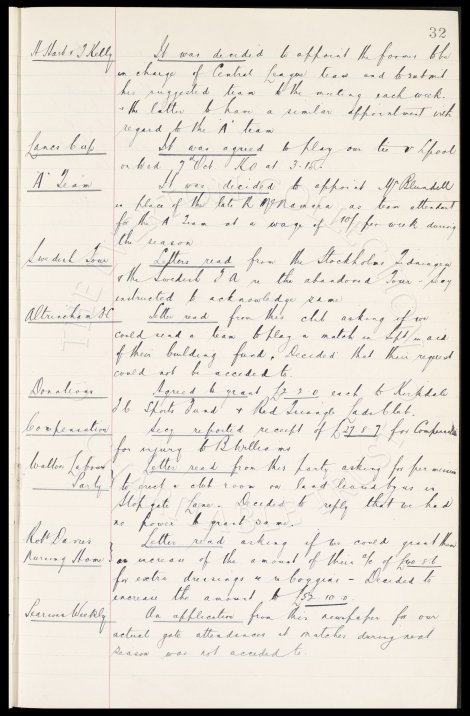 32
H. Hart & J. Kelly It was decided to appoint the former to be
in charge of Central League team and to submit
his suggested team to the meeting each week.
& the latter to have a similar appointment with
regard to the "A" team
Lancs Cup It was agreed to play our tie v L'pool
on Wed 7th Oct K.O at 3-15.
"A" Team It was decided to appoint Mr Blundell
in place of the late Mr McNamara as team attendant
for the A Team at a wage of 10/- per week during
the season
Swedish Tour Letters read from the Stockholms Tidningen
& the Swedish F A re the abandoned Tour - Secy
instructed to acknowledge same
Altrincham F.C Letter read from this club asking if we
could send a team to play a match in Sept in aid
of their building fund. Decided that their request
could not be acceded to.
Donations Agreed to grant £2.2.0 each to Kirkdale
Sports Fund & Red Triangle Lads Club.
Compensation Secy reported receipt of £29.8.7 for Compensation
for injury to B Williams
Walton Labour Letter read from this party asking for permission
Party to erect a club room on land leased by us in
Stopgate Lane. Decided to reply that we had
no power to grant same.
Robt Davies Letter read asking if we could grant them
Nursing Home an increase of the amount of their a/c of £40.8.6
for extra dressings re Coggins - Decided to
increase the amount to £52.10.0.
Weekly An application from this newspaper for our
actual gate attendances at matches during next
season was not acceded to.